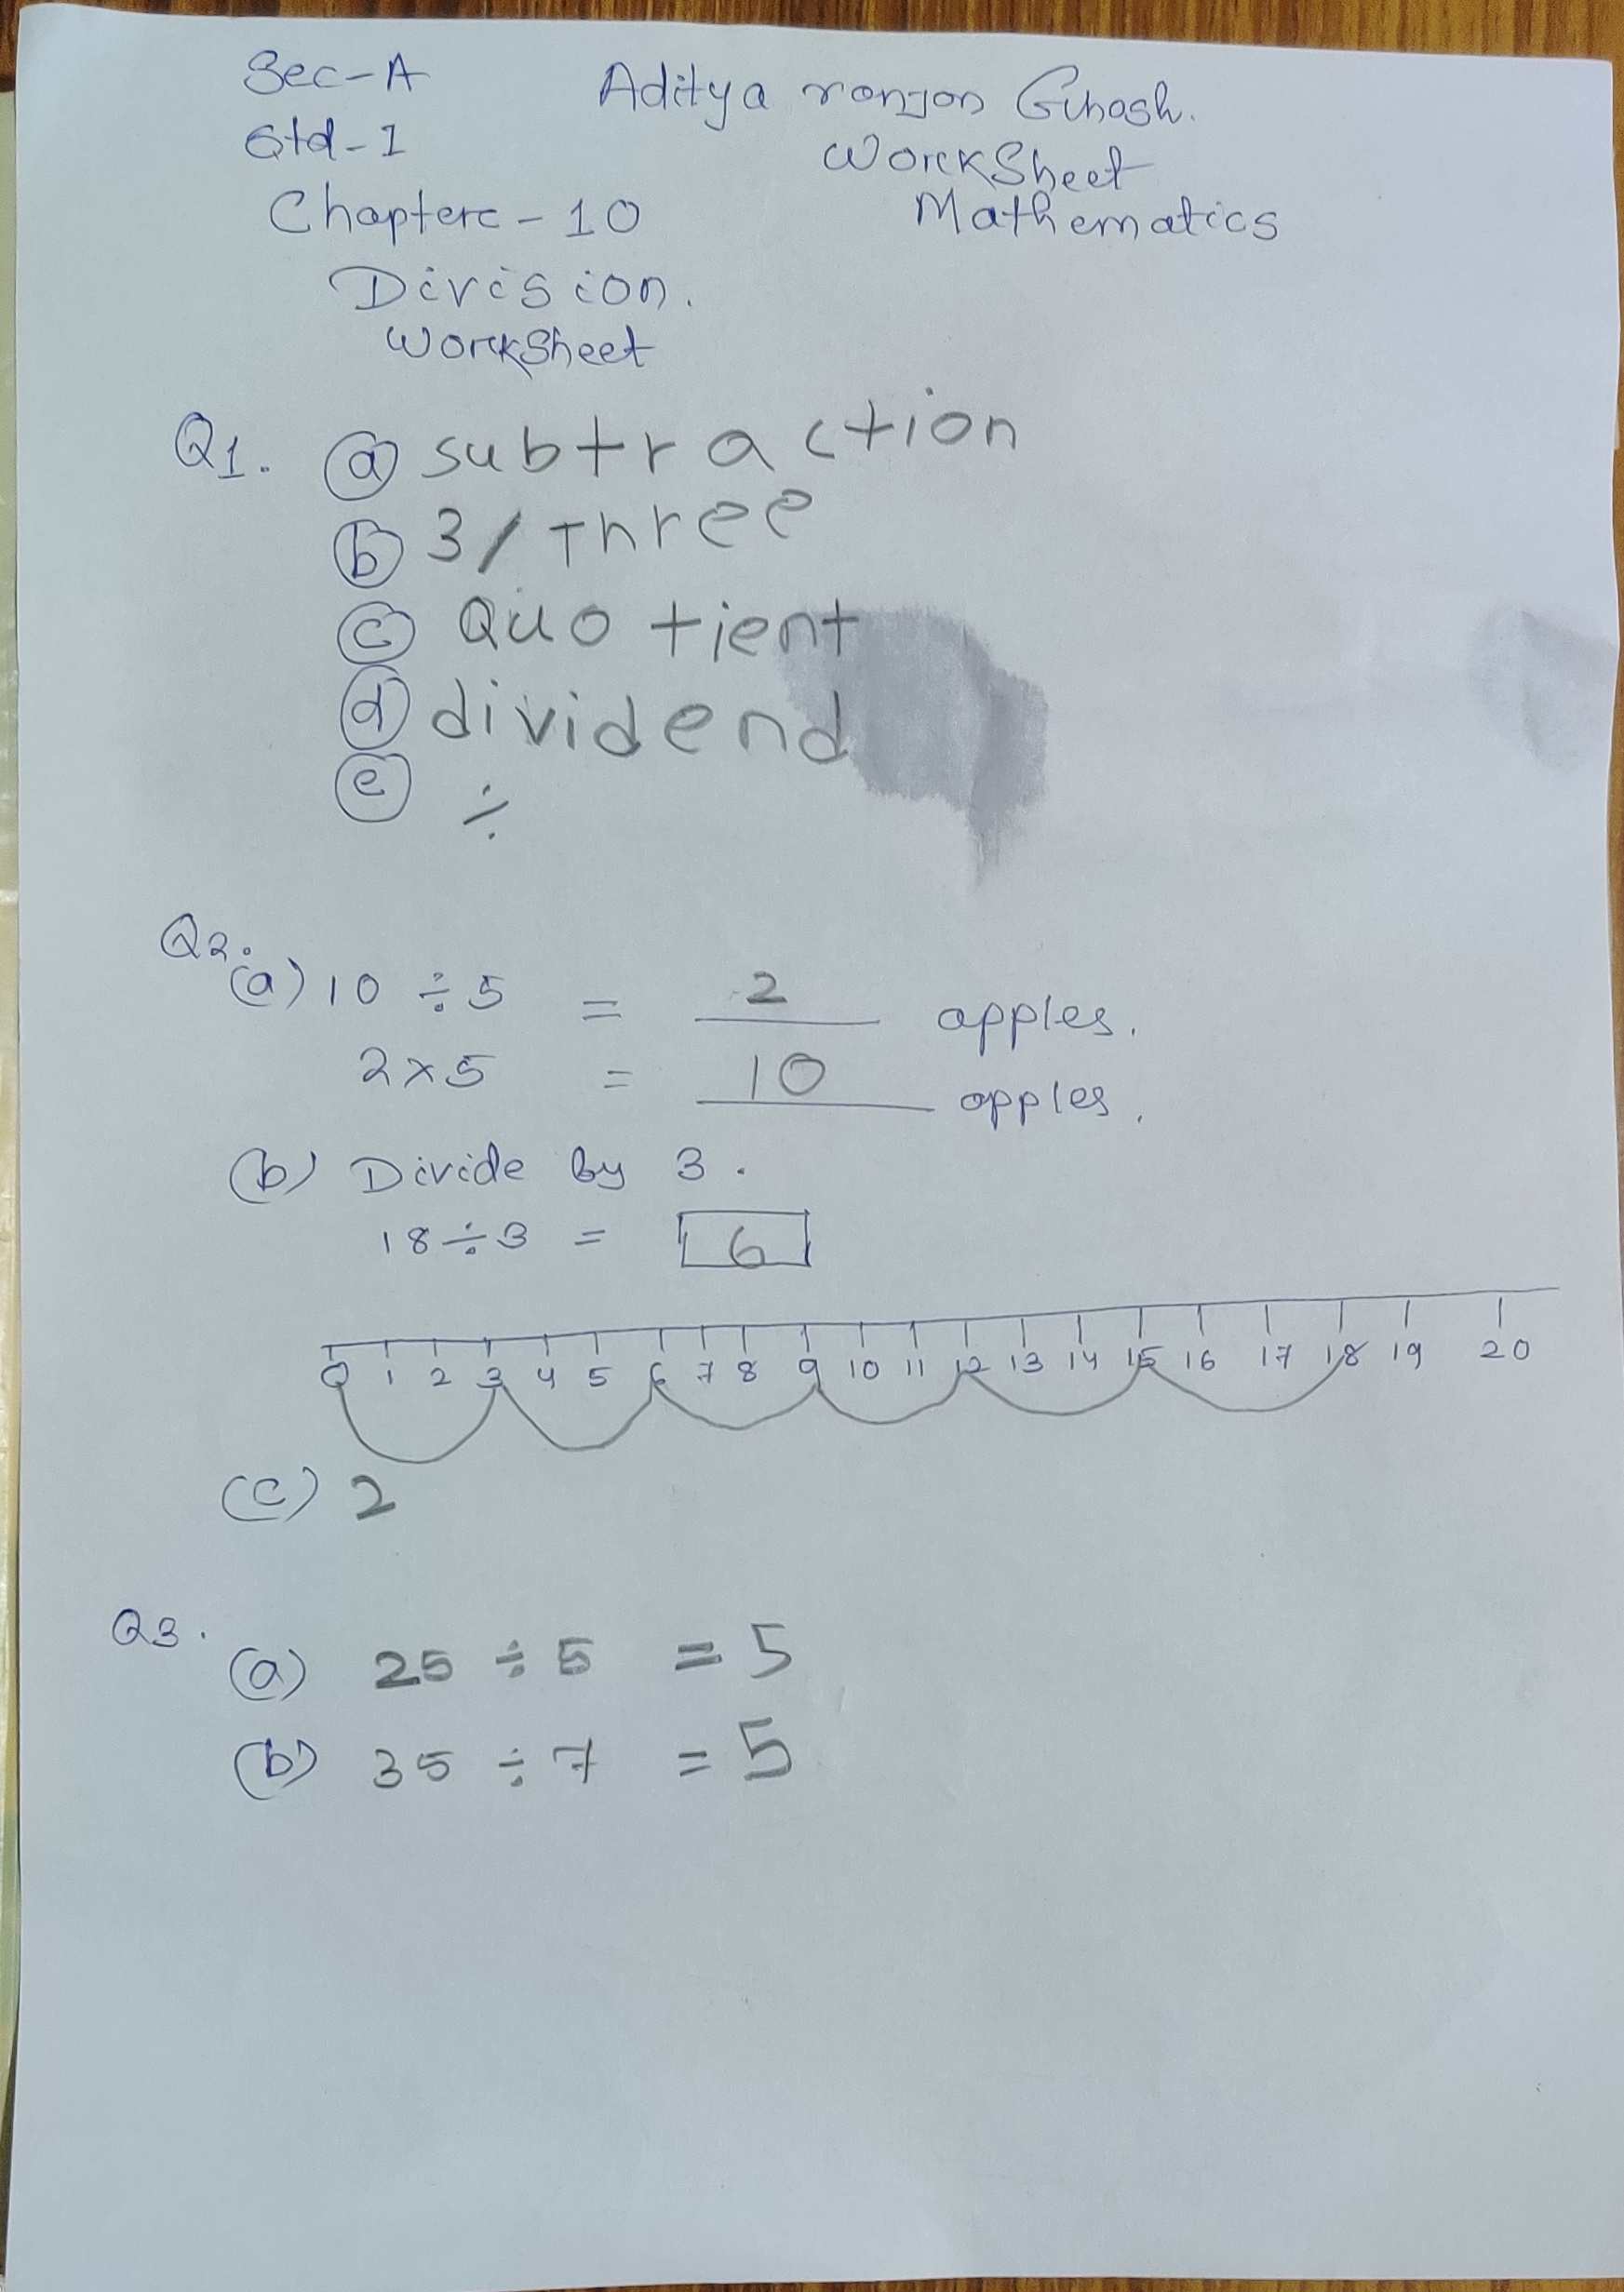 Sec-A Aditya ranjan Ghosh.
Std-1 WorkSheet
Chapter-10 Mathematics
Division.
WorkSheet
Q1. (a) subtraction
(b) 3/Three
(c) Quotient
(d) dividend
(e) ÷
Q2.
(a) 10 ÷ 5 = 2 apples.
2×5 = 10 apples.
(b) Divide by 3.
18÷3 = 6
0 1 2 3 4 5 6 7 8 9 10 11 12 13 14 15 16 17 18 19 20
(c) 2
Q3.
(a) 25 ÷ 5 = 5
(b) 35 ÷ 7 = 5